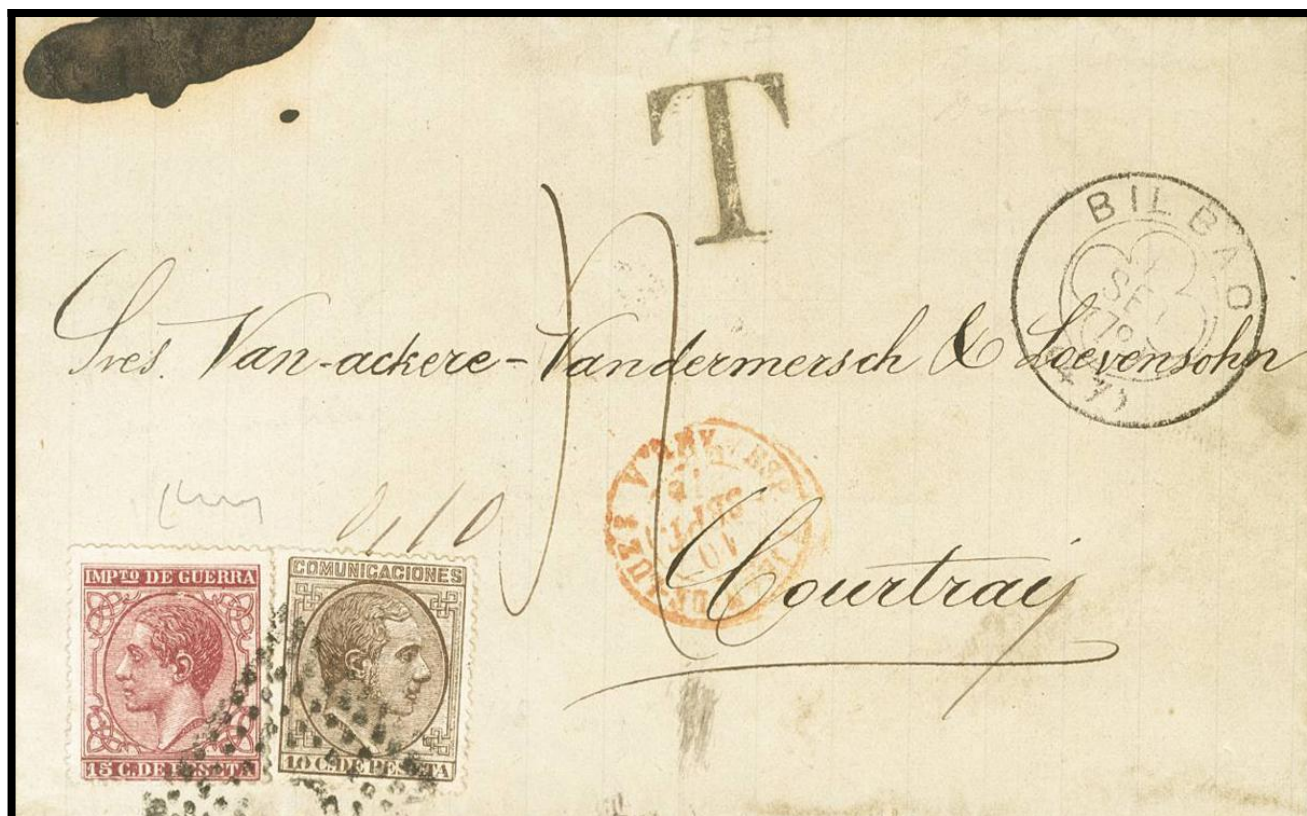 T
BILBAO
SET
79
Sres. Van-ackere-Vandermersch & Loevensohn
10
SEPT.
Courtrai
0,10
IMPTO DE GUERRA
15 C. DE PESETA
COMUNICACIONES
10 C. DE PESETA